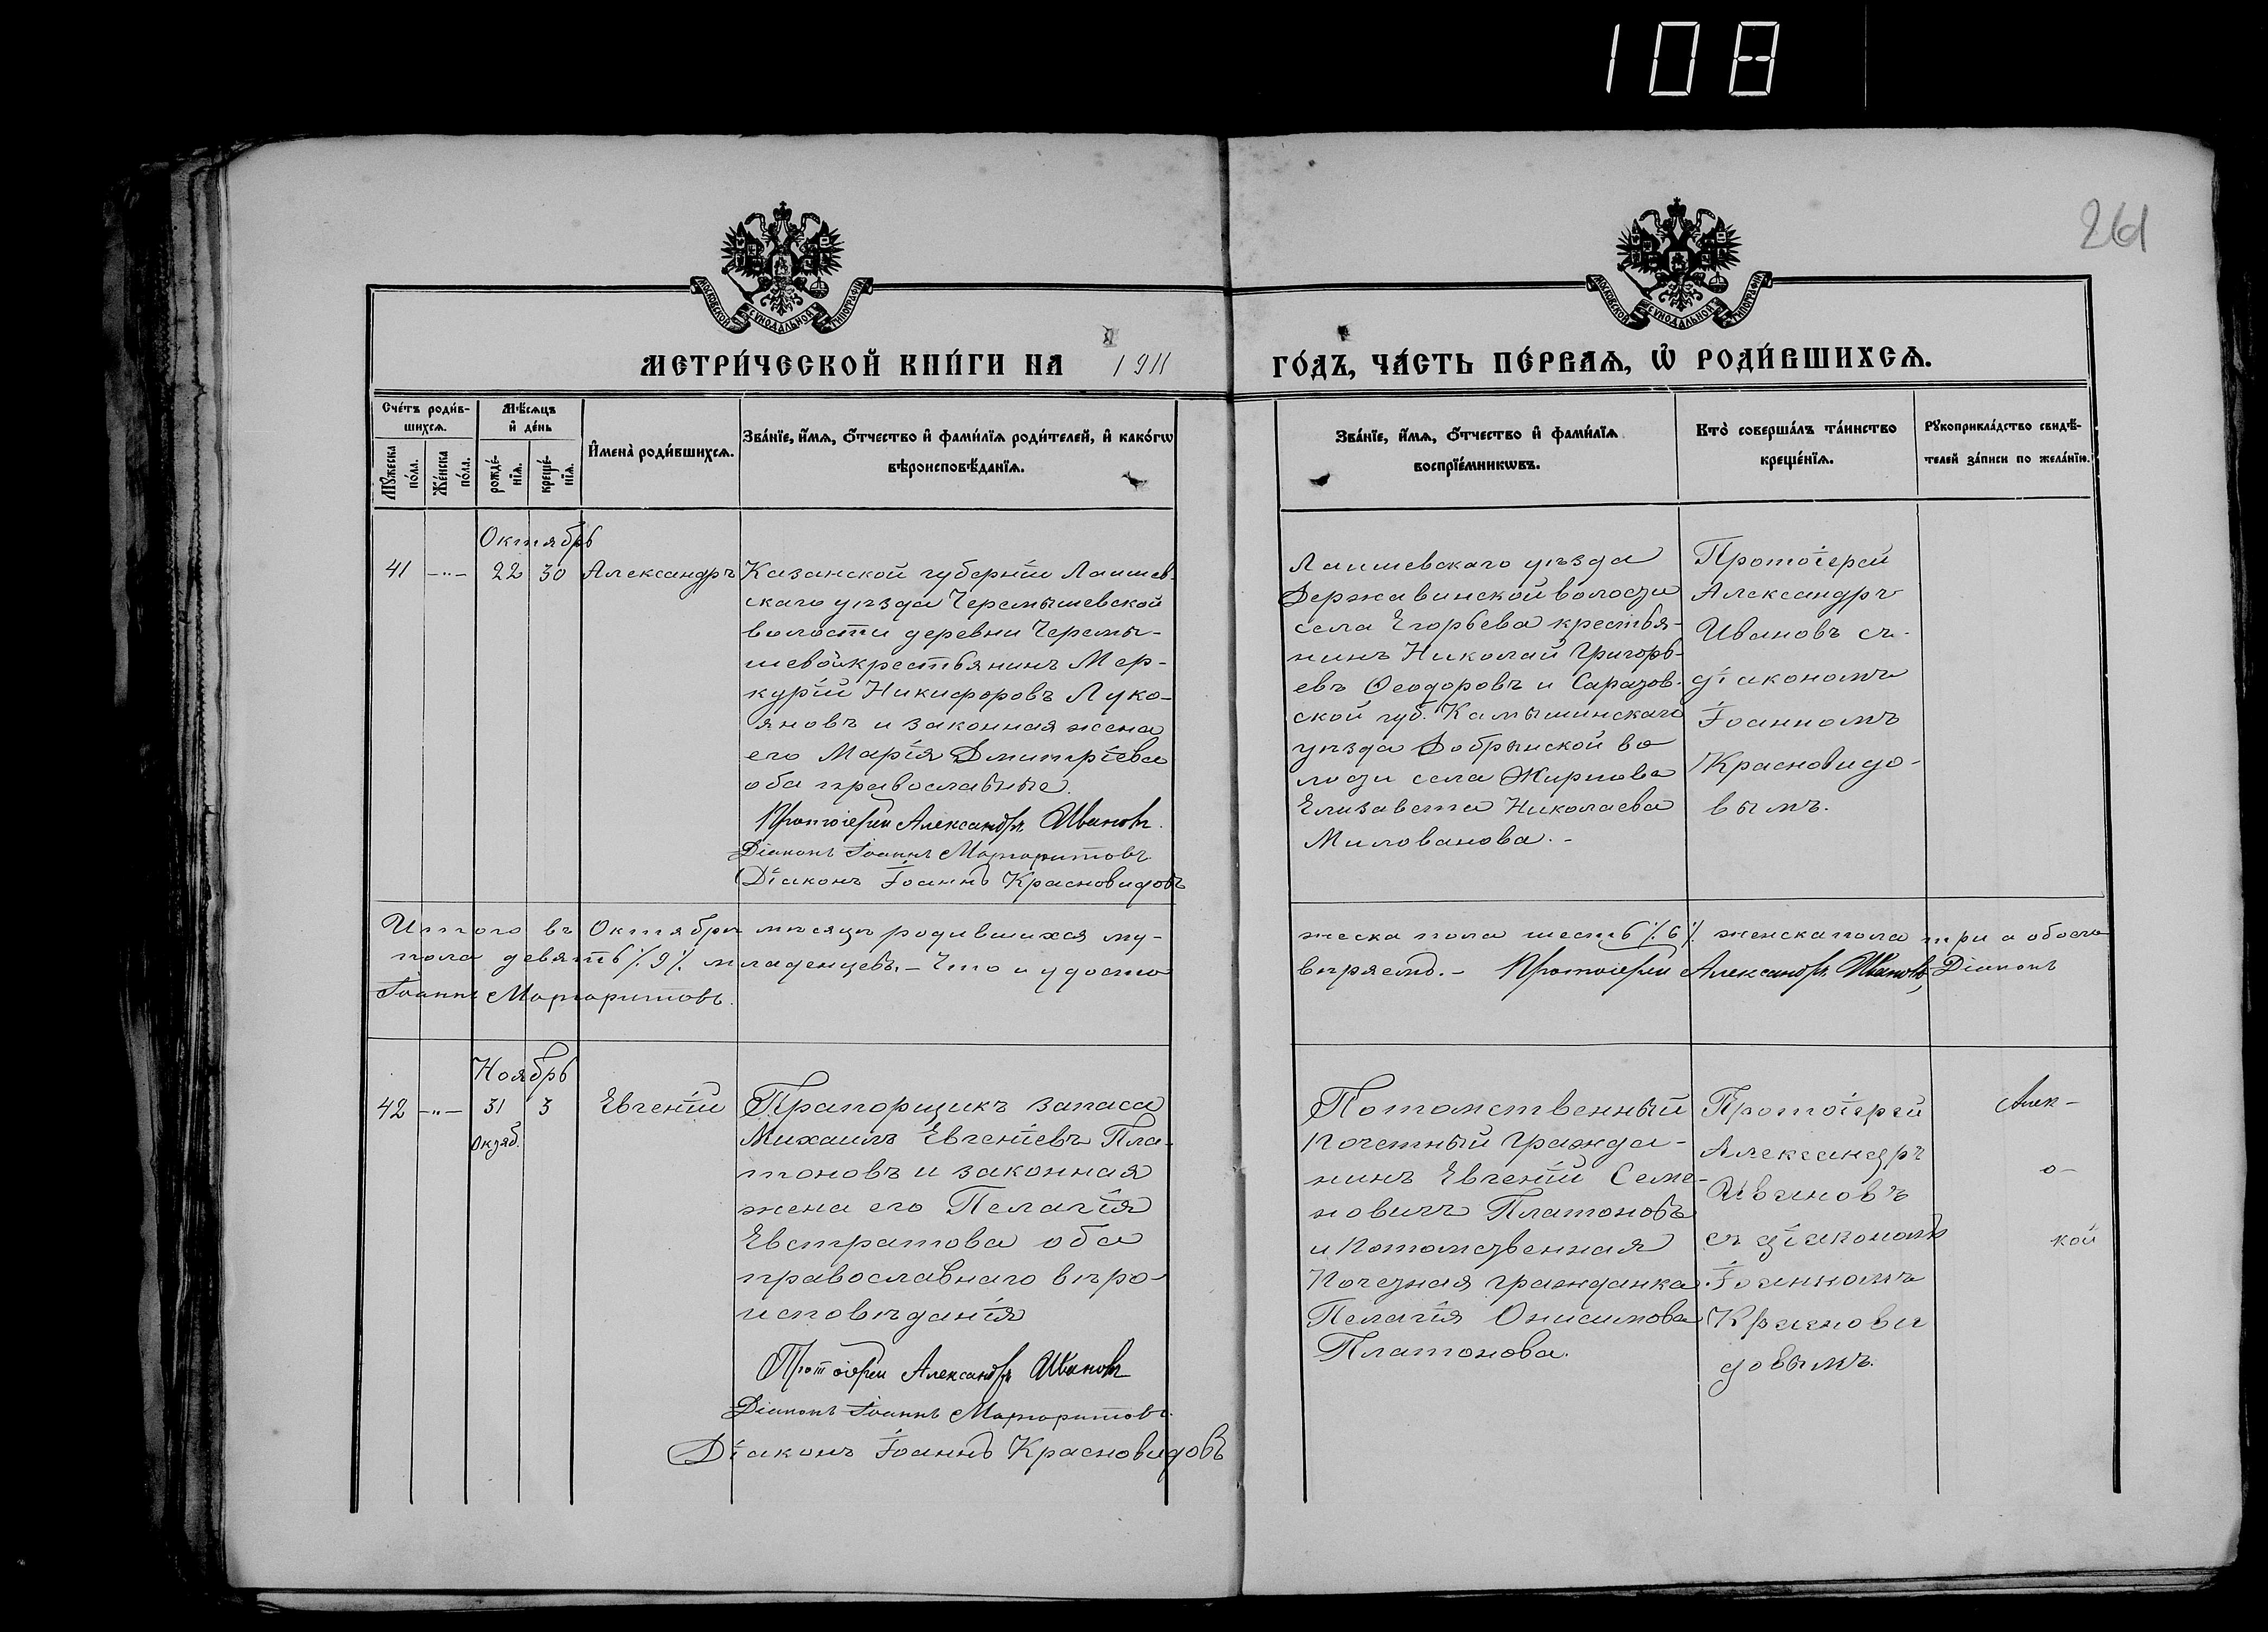 108
261
МОСКОВСКОЙ СУНОДАЛЬНОЙ ТИПОГРАФІИ
МОСКОВСКОЙ СУНОДАЛЬНОЙ ТИПОГРАФІИ
МЕТРИ́ЧЕСКОЙ КНИ́ГИ НА 1911
ГО́ДЪ, ЧА́СТЬ ПЕ́РВАѦ, Ѽ РОДИ́ВШИХСѦ.
Сче́тъ роди́в-
шихсѧ.
Мꙋжеска
по́ла.
Же́нска
по́ла.
Мѣ́сѧцъ
и҆ де́нь
рожде́-
нїѧ.
креще́-
нїѧ.
И҆мена̀ роди́вшихсѧ.
Зва́нїе, и҆́мѧ, ѻ҆́тчество и҆ фами́лїѧ роди́телей, и҆ како́гѡ
вѣроисповѣ́данїѧ.
Зва́нїе, и҆́мѧ, ѻ҆́тчество и҆ фами́лїѧ
воспрїе́мникѡвъ.
Кто̀ соверша́лъ та́инство
креще́нїѧ.
Рꙋкоприкла́дство свидѣ́-
телей за́писи по жела́нїю.
Октябрь
41 -"- 22 30 Александръ
Казанской губерніи Лаишев-
скаго уѣзда Черемышевской
волости деревни Черемы-
шевой крестьянинъ Мер-
курій Никифоровъ Луко-
яновъ и законная жена
его Марія Дмитріева
оба православные.
Протоіерей Александръ Ивановъ.
Діаконъ Іоаннъ Маргаритовъ.
Діаконъ Іоаннъ Красновидовъ
Лаишевскаго уѣзда
Державинской волости
села Егорьева крестья-
нинъ Николай Григорь-
евъ Ѳеодоровъ и Саратов-
ской губ. Камышинскаго
уѣзда Добрынской во
лости села Жирнова
Елизавета Николаева
Милованова. -
Протоіерей
Александръ
Ивановъ съ
діакономъ
Іоанномъ
Красновидо-
вымъ.
Итого въ Октябрѣ мѣсяцѣ родившихся му-
жеска пола шесть ٪6٪ женска пола три а обоего
пола девять ٪9٪ младенцевъ. - Что и удосто
вѣряемъ. - Протоіерей Александръ Ивановъ, Діаконъ
Іоаннъ Маргаритовъ.
Ноябрь
42 -"- 31 3 Евгеній
Октяб.
Прапорщикъ запаса
Михаилъ Евгеніевъ Пла-
тоновъ и законная
жена его Пелагія
Евстратова оба
православнаго вѣро-
исповѣданія
Протоіерей Александръ Ивановъ
Діаконъ Іоаннъ Маргаритовъ.
Діаконъ Іоаннъ Красновидовъ
Потомственный
Почетный Гражда-
нинъ Евгеній Семе-
новичъ Платоновъ
и Потомственная
Почетная гражданка
Пелагія Онисимова
Платонова.
Протоіерей
Александръ
Ивановъ
съ діакономъ
Іоанномъ
Краснови
довымъ.
о-
кой